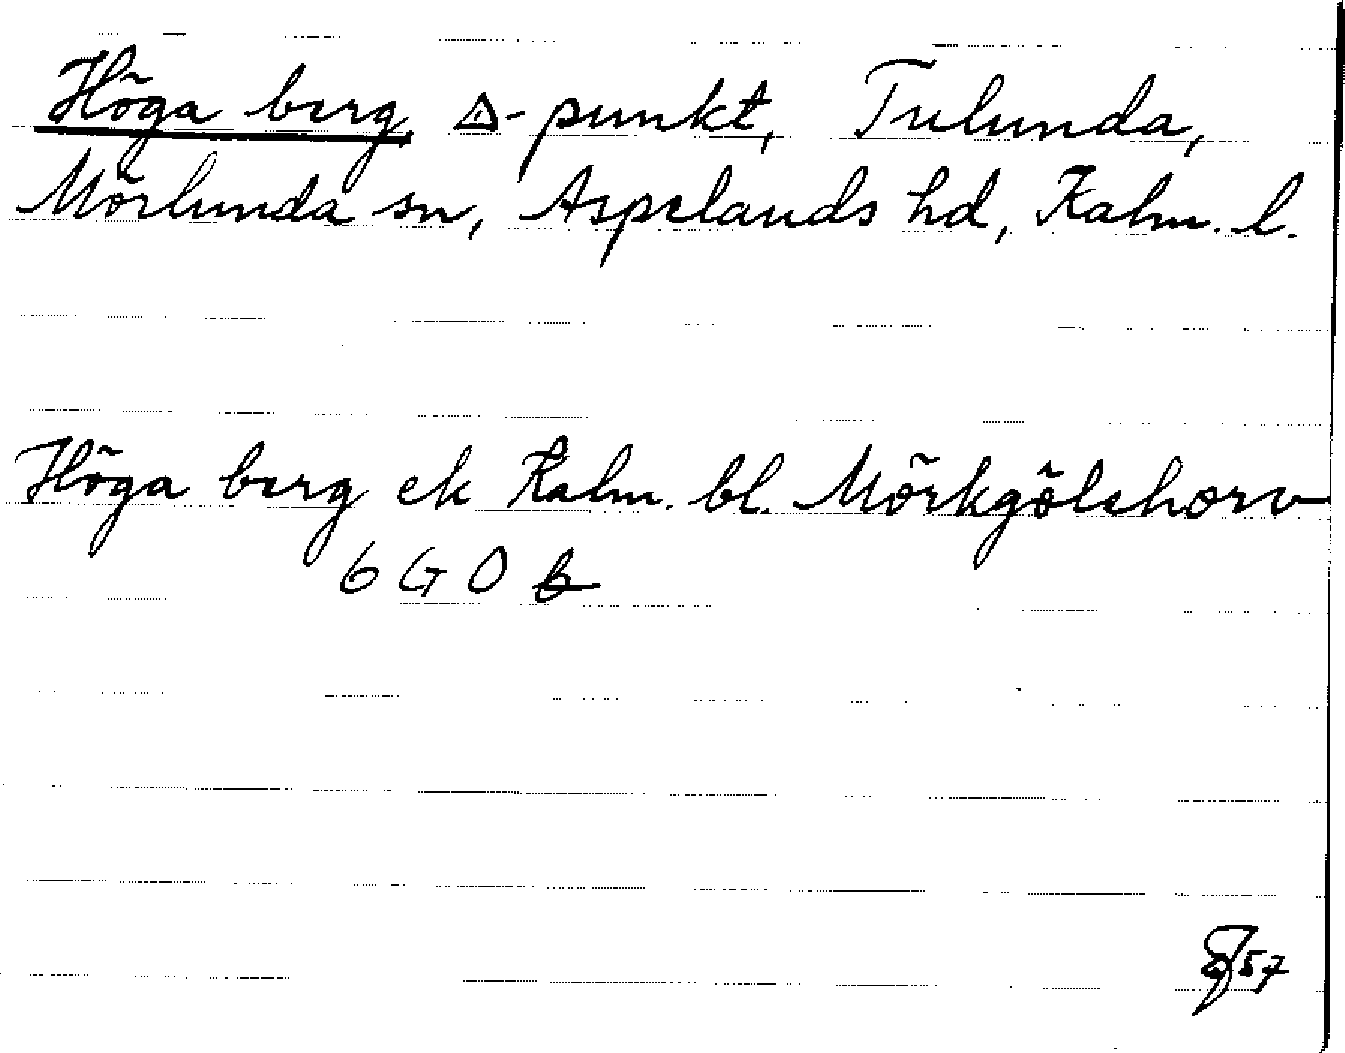 Höga berg △-punkt, Tulunda,
Mörlunda sn, Aspelands hd, Kalm. l.
Höga berg ek Kalm. bl. Mörkgölehorv
6 G 0 b
57